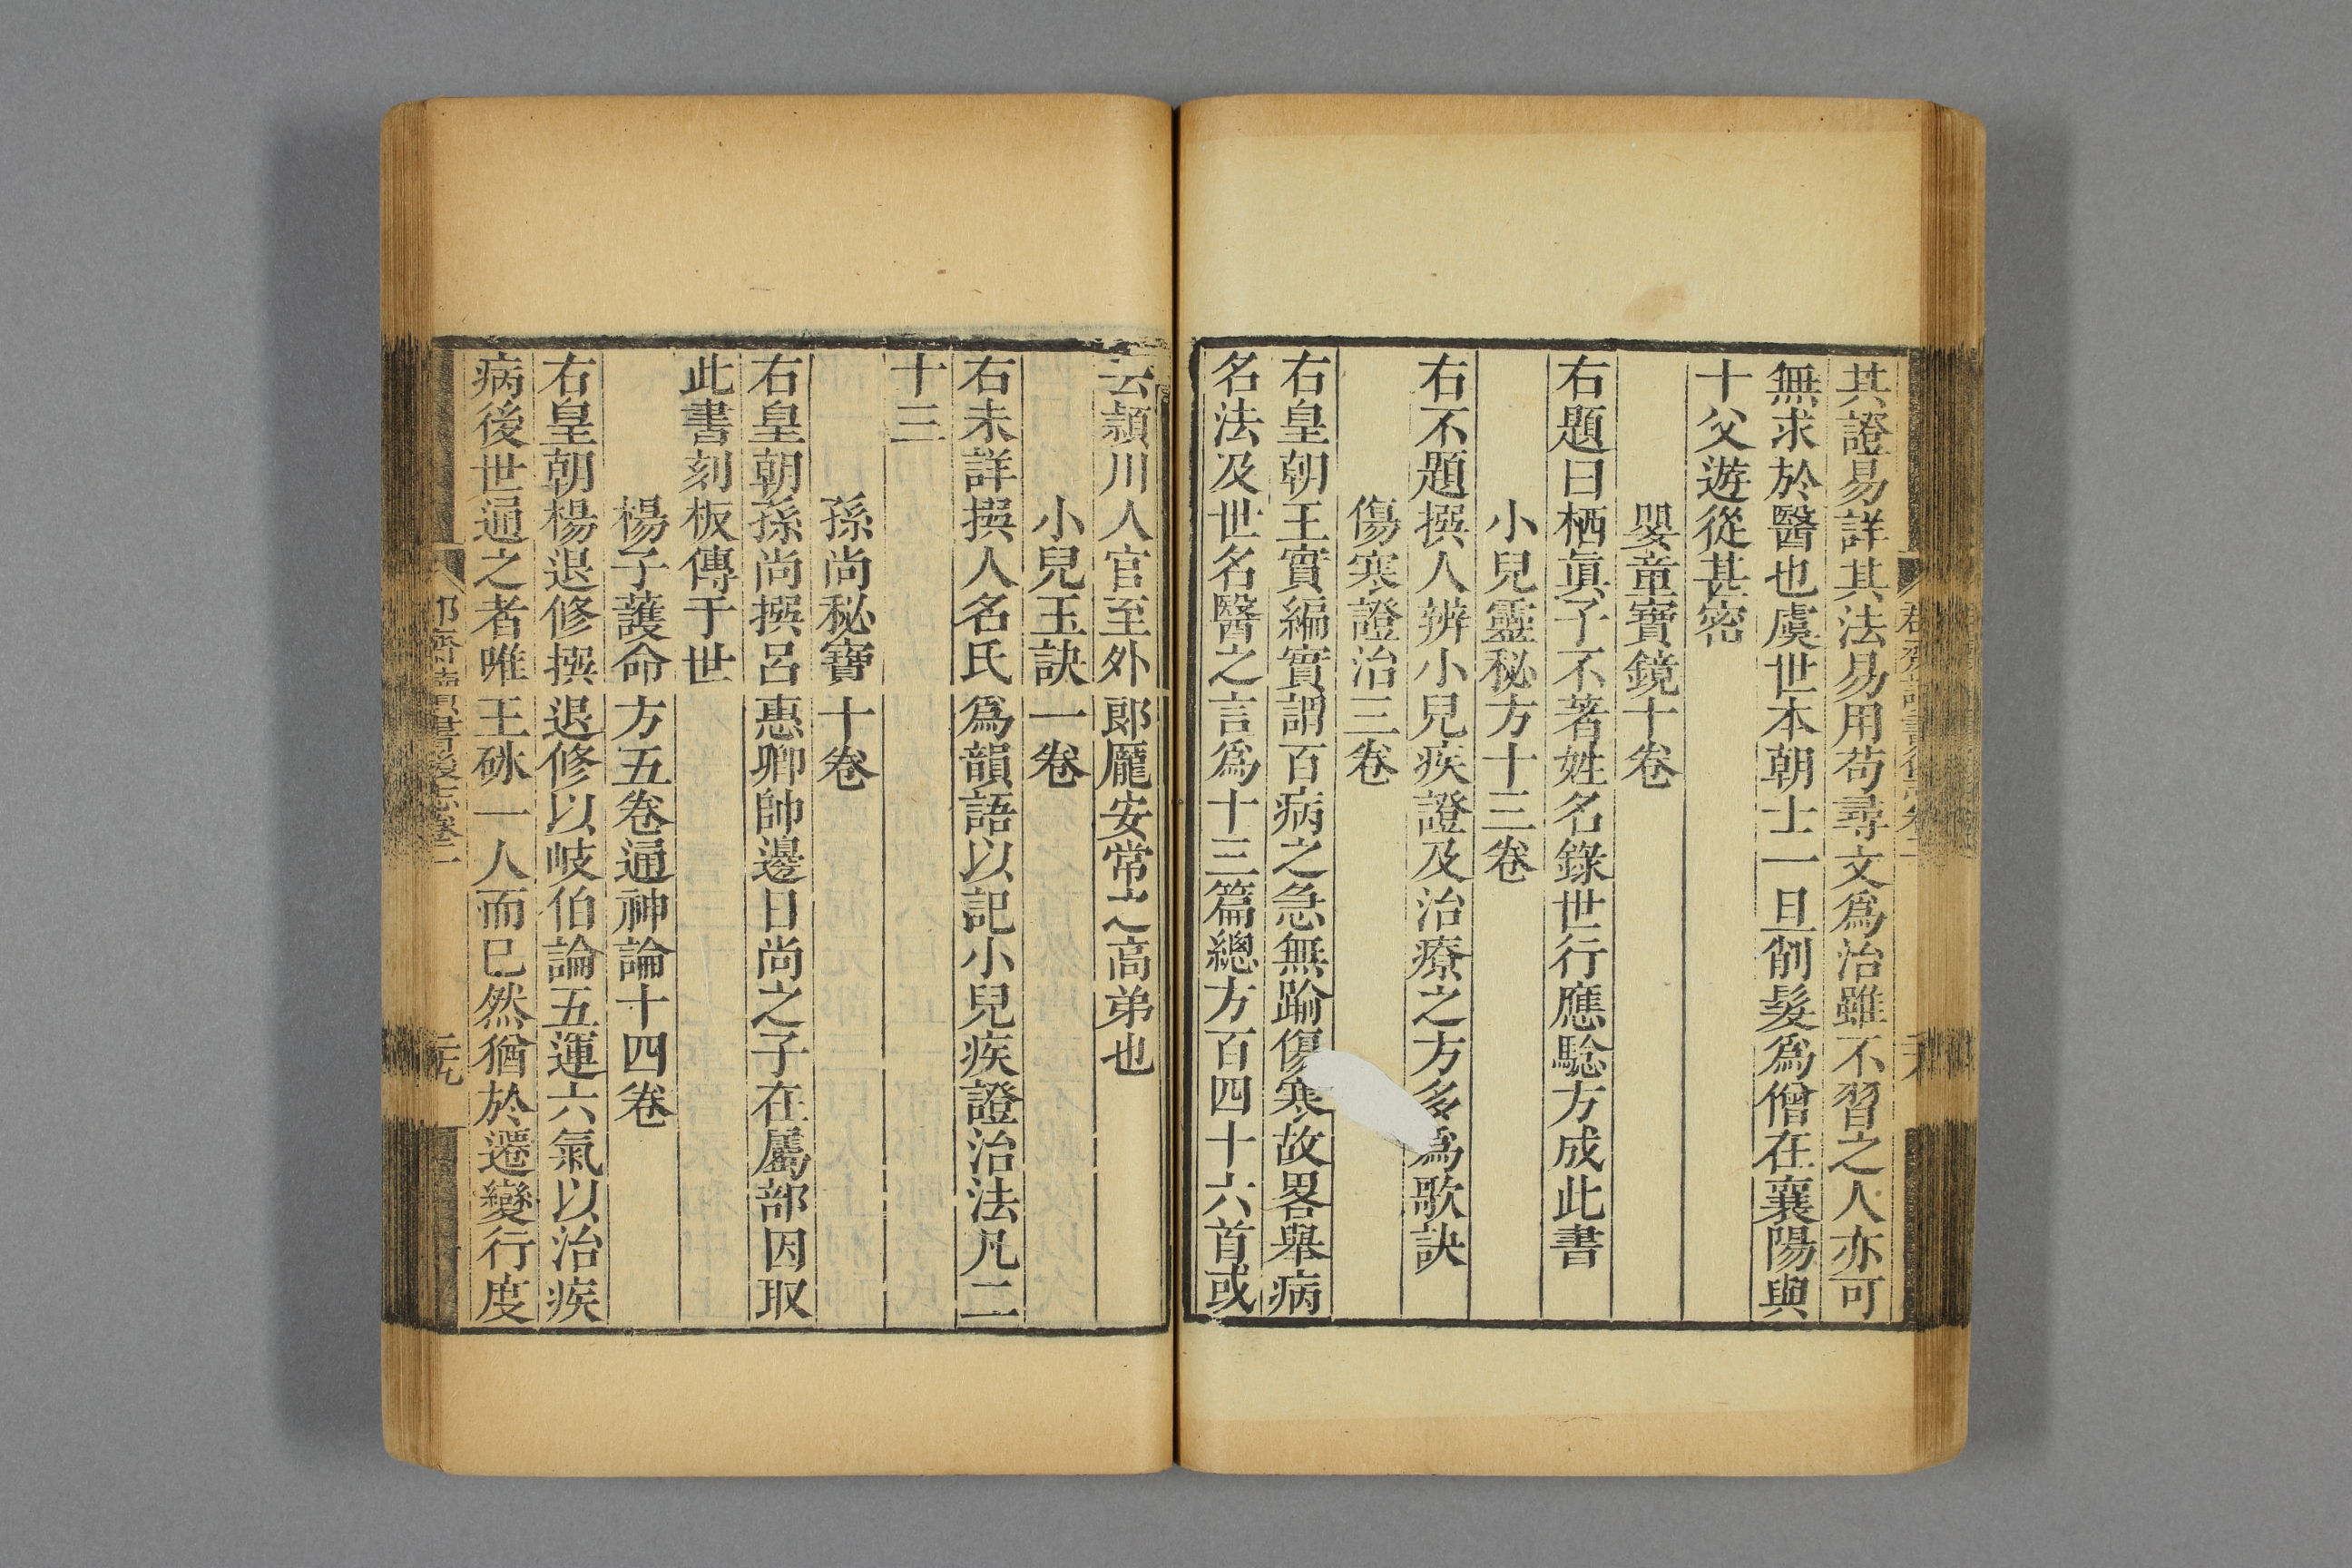 其證易詳其法易用苟尋文爲治雖不習之人亦可
無求於醫也虞世本朝士一旦削髮爲僧在襄陽與
十父遊從甚密
嬰童寶鏡十卷
右題曰栖眞子不著姓名錄世行應驗方成此書
小兒靈秘方十三卷
右不題撰人辨小兒疾證及治療之方多爲歌訣
傷寒證治三卷
右皇朝王實編實謂百病之急無踰傷寒故畧舉病
名法及世名醫之言爲十三篇總方百四十六首或
云潁川人官至外郎龐安常之高弟也
小兒玉訣一卷
右未詳撰人名氏爲韻語以記小兒疾證治法凡二
十三
孫尚秘寶十卷
右皇朝孫尚撰呂惠卿帥邊日尚之子在屬部因取
此書刻板傳于世
楊子護命方五卷通神論十四卷
右皇朝楊退修撰退修以岐伯論五運六氣以治疾
病後世通之者唯王砅一人而已然猶於遷變行度
讀書後志卷二
二九